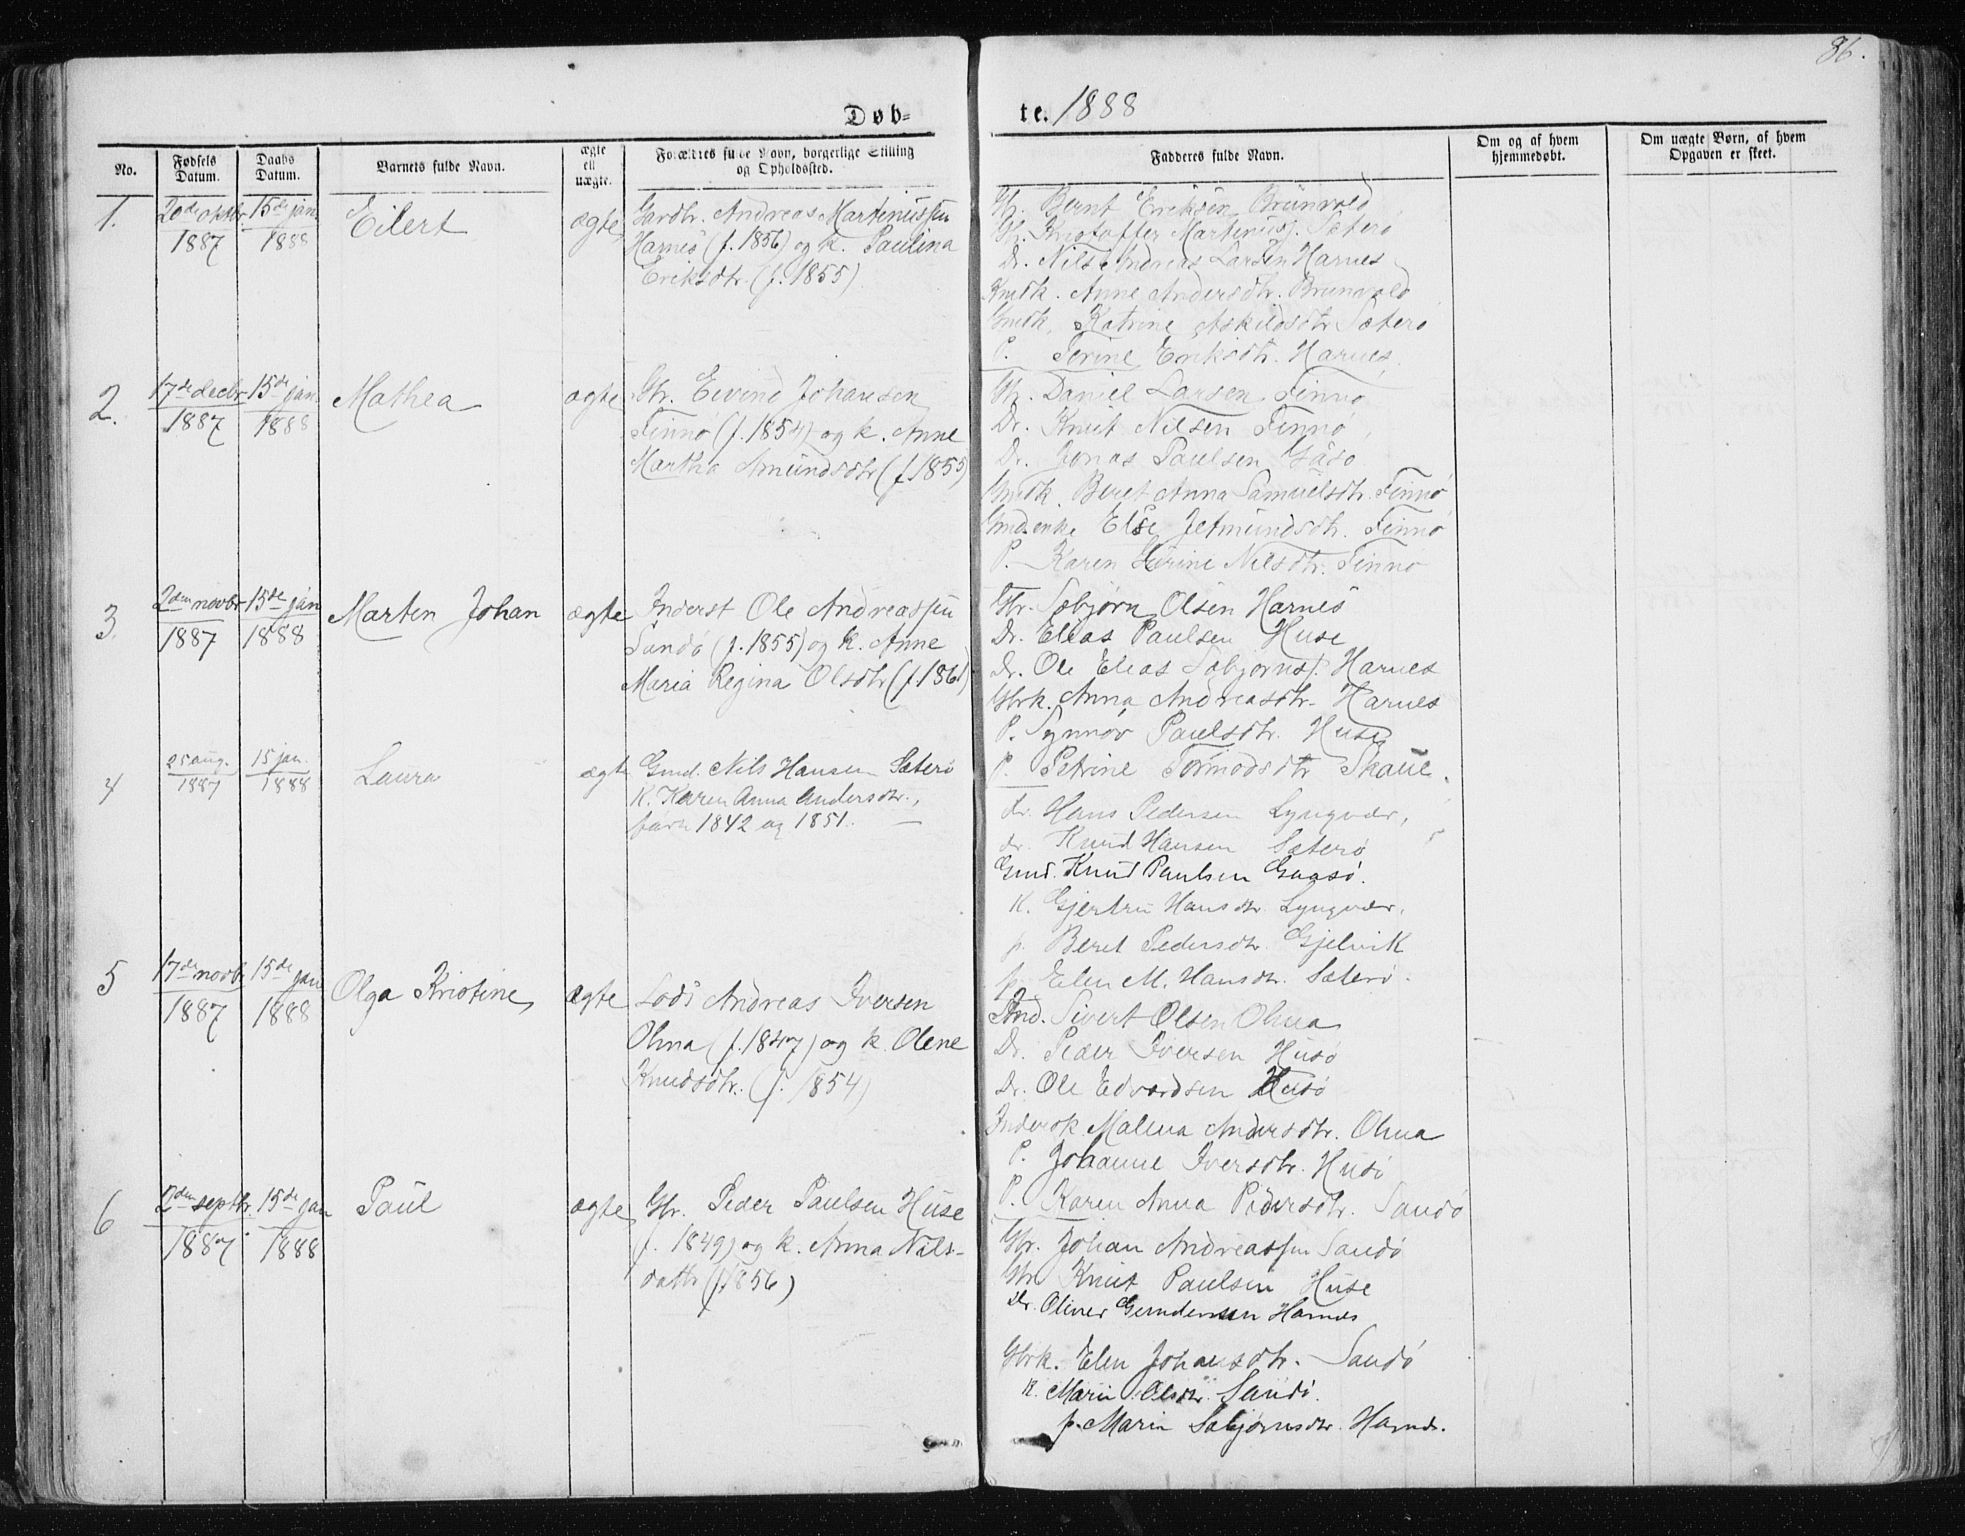 86.
Døb=
te. 1888
No.
Fødsels Datum.
Daabs Datum.
Barnets fulde Navn.
ægte ell uægte.
Forældres fulde Navn, borgerlige Stilling og Opholdssted.
Fadderes fulde Navn.
Om og af hvem hjemmedøbt.
Om uægte Børn, af hvem Opgaven er skeet.
1. 20de oktbr 1887 15de jan 1888 Eilert ægte
Gardbr. Andreas Martinussen
Harnes (f. 1856) og k. Paulina
Eriksdtr. (f. 1855)
Gbr. Bernt Eriksen Brunvold
Gbr. Kristoffer Martinusf. Sæterø
Dr. Nils Andreas Larsen Harnes
Gmdk. Anne Andersdtr. Brunvold
Gmdk. Katrine Askildsdtr Sæterø
P. Serine Eriksdtr. Harnes
2. 17de decbr 1887 15de jan 1888 Mathea ægte
Gbr. Eivind Johansen
Finnø (f. 1854) og k. Anne
Martha Amundsdtr (f. 1855)
Gbr. Daniel Larsen Finnø
Dr. Knut Nilsen Finnø
Dr. Jonas Paulsen Gåsø
Gmdk. Beret Anna Samuelsdtr. Finnø
Gmd.enke Else Jetmundsdtr. Finnø
P. Karen Nilsdtr. Finnø
3. 2den novbr 1887 15de jan 1888 Marten Johan ægte
Inderst Ole Andreassen
Sandø (f. 1855) og k. Anne
Maria Regina Olsdtr (f. 1861)
Gbr. Sæbjørn Olsen Harnes
Dr. Elias Paulsen Huse
Dr. Ole Elias Sæbjørnsf. Harnes
Gbrk. Anna Andreasdtr. Harnes
P. Synnøv Paulsdtr. Huse
P. Petrine Tormodsdtr Skaue.
4 25 aug. 1887 15 jan. 1888 Laura ægte
Gmd. Nils Hansen Sæterø
K. Karen Anna Andersdtr.,
født 1842 og 1851.
dr. Hans Pedersen Lyngvær,
dr. Knud Hansen Sæterø
Gmd. Knud Paulsen Gaasø.
K. Gjertru Hansdtr. Lyngvær.
p. Beret Pedersdtr. Gjelvik
p. Elen M. Hansdtr. Sæterø.
5 17de novbr 1887 15de jan 1888 Olga Kristine ægte
Lods Andreas Iversen
Olma (f. 1847) og k. Olene
Knudsdtr. (f. 1854)
Ind. Sivert Olsen Olma
Dr. Peder Iversen Husø
Dr. Ole Edvardsen Husø
Indersk Malena Andersdtr. Olma
P. Johanne Iversdtr. Husø
P. Karen Anna Pedersdtr. Sandø
6 2den septbr. 1887 15de jan 1888 Paul ægte
Gbr. Peder Paulsen Huse
(f. 1849) og k. Anna Nils-
datter (f. 1856)
Gbr. Johan Andreassen Sandø
Gbr Knut Paulsen Huse
Dr. Oliver Gundersen Harnes
Gbrk. Elen Johansdtr. Sandø
K. Marie Olsdtr. Sandø.
p. Marie Sæbjørnsdtr. Harnes.